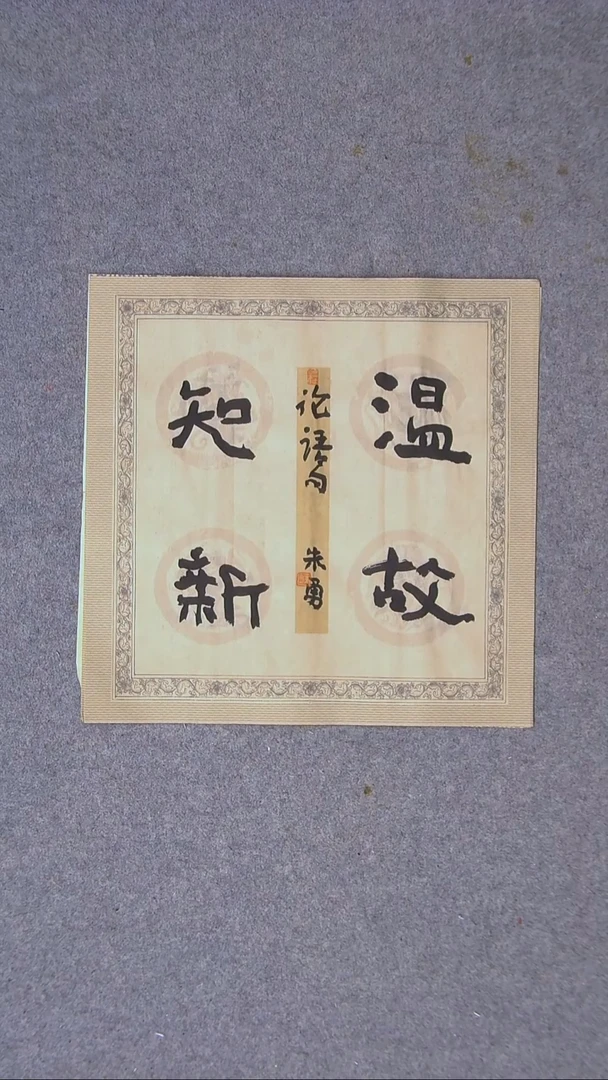 温故
论语句 朱勇
知新